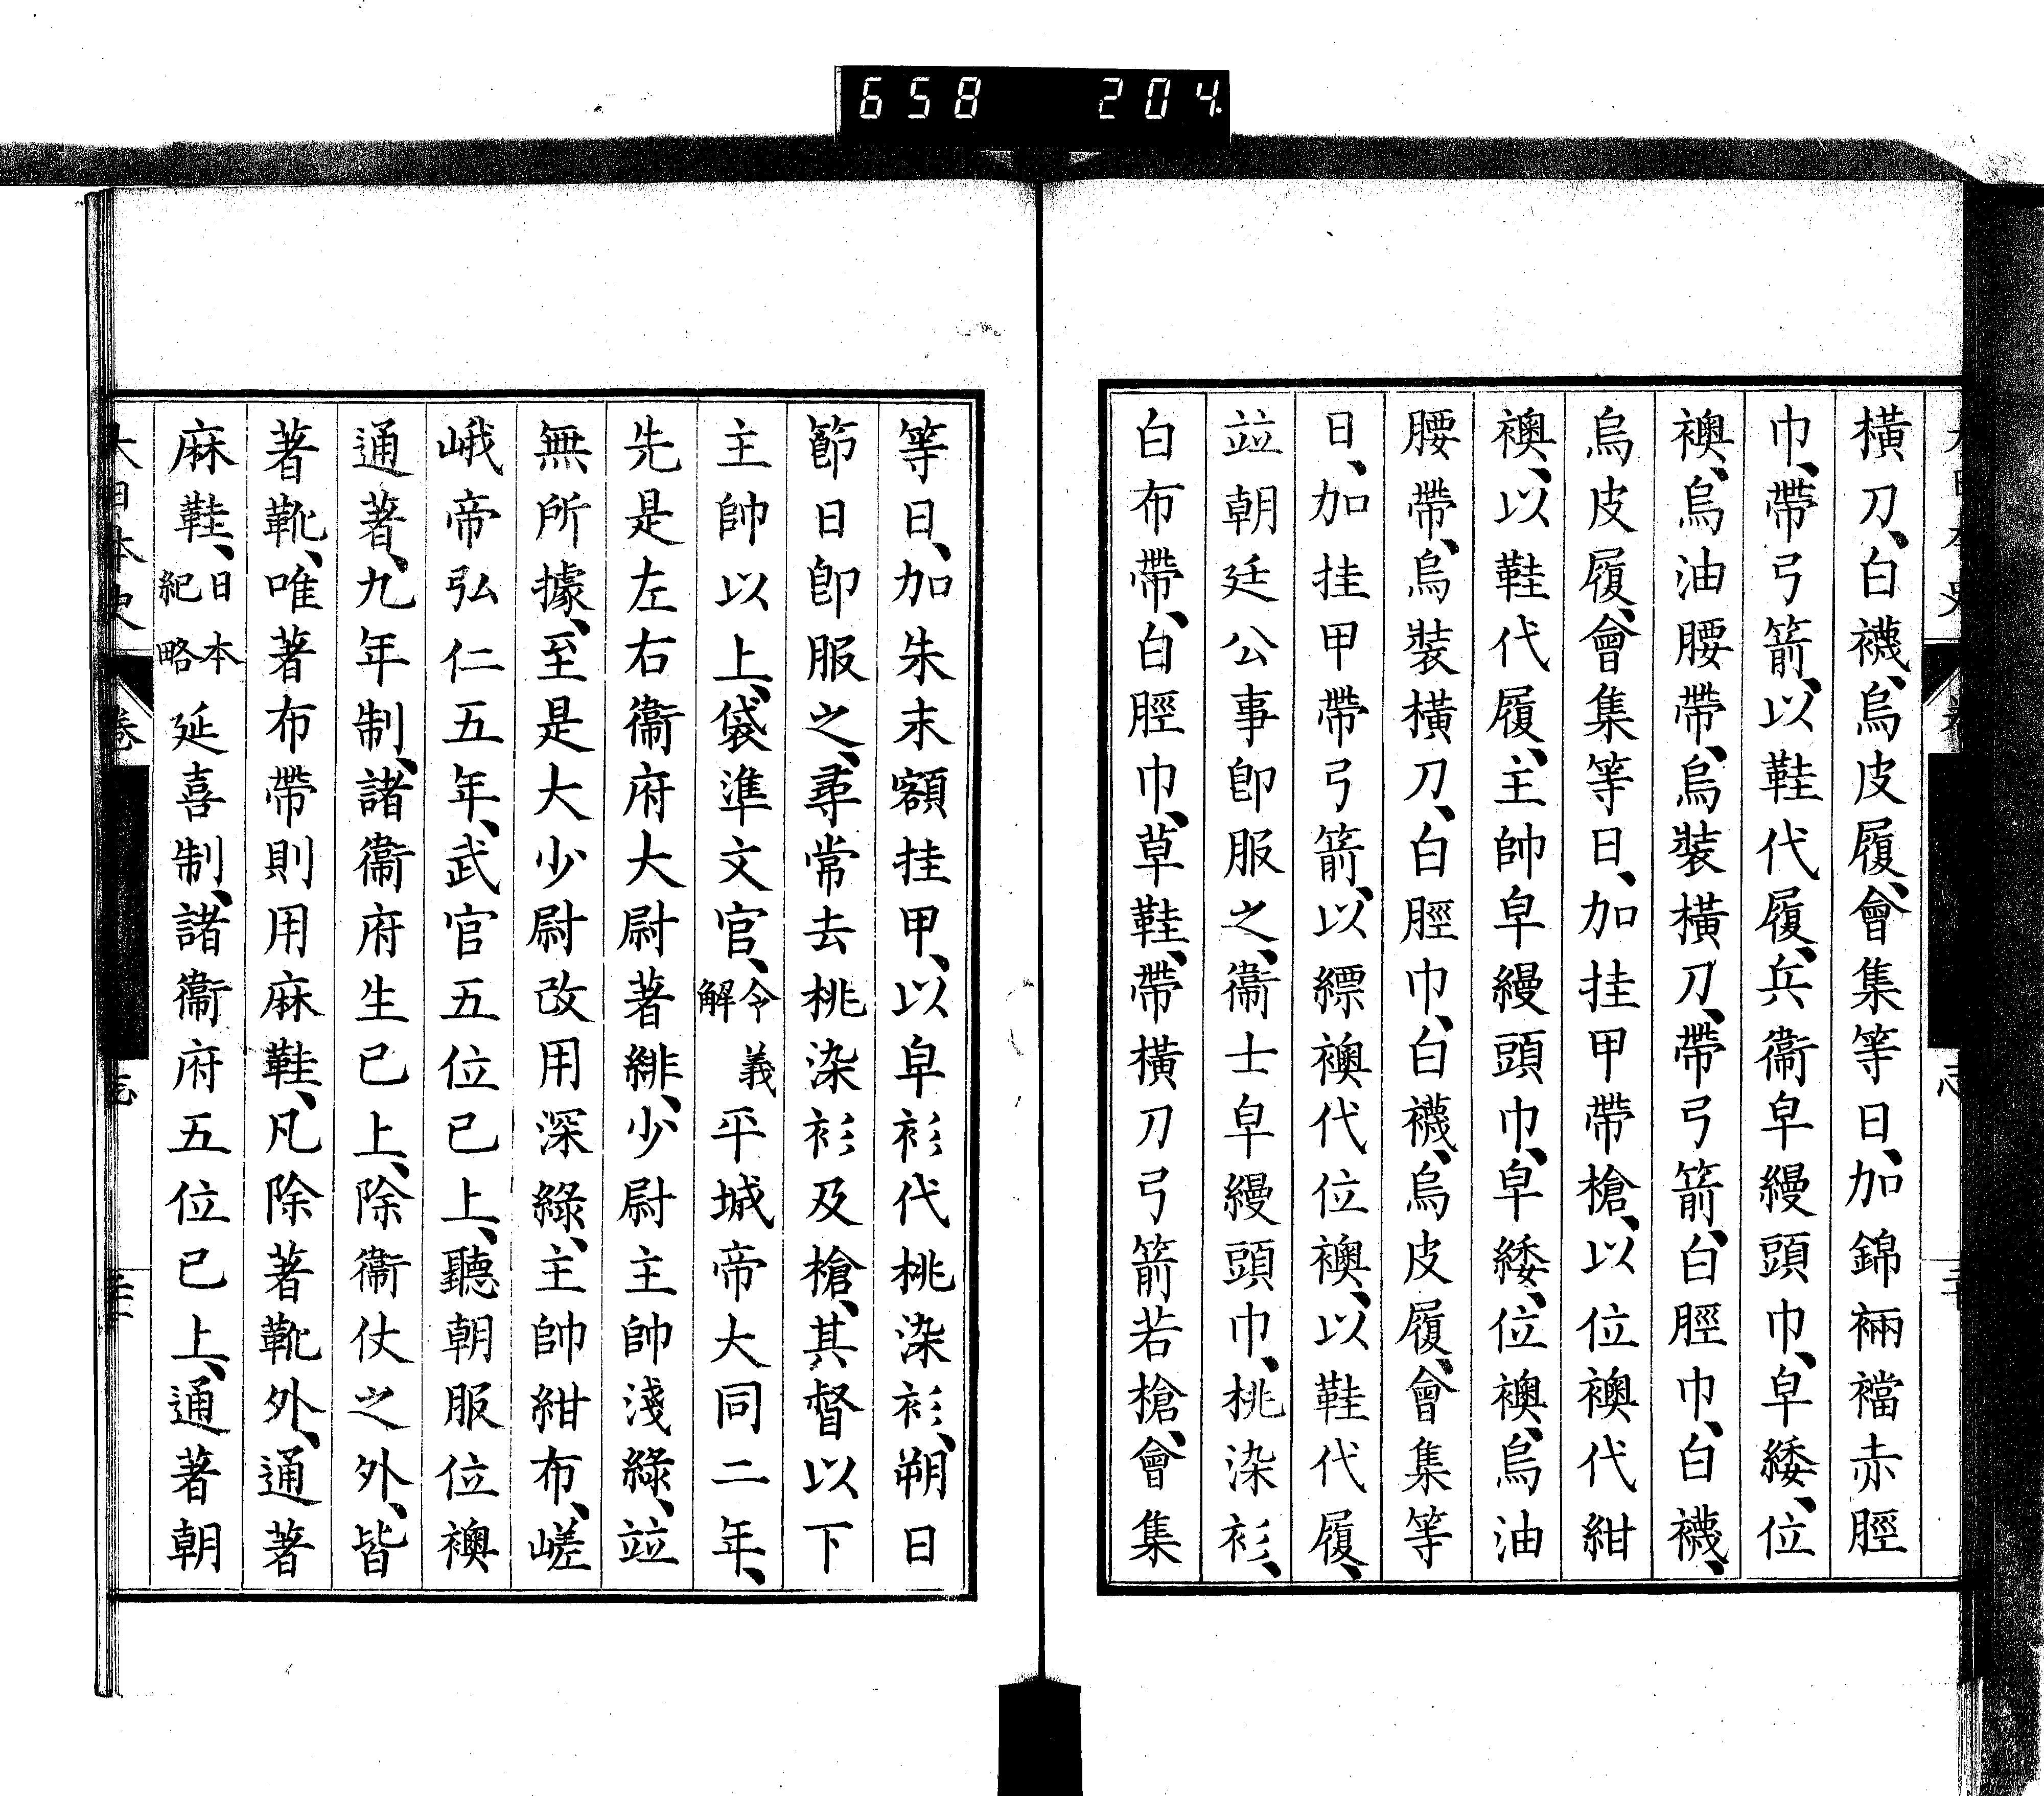 658 204
橫刀、白襪、烏皮履、會集等日、加錦裲襠赤脛
巾、帶弓箭、以鞋代履、兵衞皁縵頭巾、皁緌、位
襖、烏油腰帶、烏裝橫刀、帶弓箭、白脛巾、白襪、
烏皮履、會集等日、加挂甲帶槍、以位襖代紺
襖、以鞋代履、主帥皁縵頭巾、皁緌、位襖、烏油
腰帶、烏裝橫刀、白脛巾、白襪、烏皮履、會集等
日、加挂甲帶弓箭、以縹襖代位襖、以鞋代履、
竝朝廷公事卽服之、衞士皁縵頭巾、桃染衫、
白布帶、白脛巾、草鞋、帶橫刀弓箭若槍、會集
等日、加朱末額挂甲、以皁衫代桃染衫、朔日
節日卽服之、尋常去桃染衫及槍、其督以下
主帥以上、袋準文官、令義解平城帝大同二年、
先是左右衞府大尉著緋、少尉主帥淺綠、竝
無所據、至是大少尉改用深綠、主帥紺布、嵯
峨帝弘仁五年、武官五位已上、聽朝服位襖
通著、九年制、諸衞府生已上、除衞仗之外、皆
著靴、唯著布帶則用麻鞋、凡除著靴外、通著
麻鞋、日本紀略延喜制、諸衞府五位已上、通著朝
大日本史 卷 志